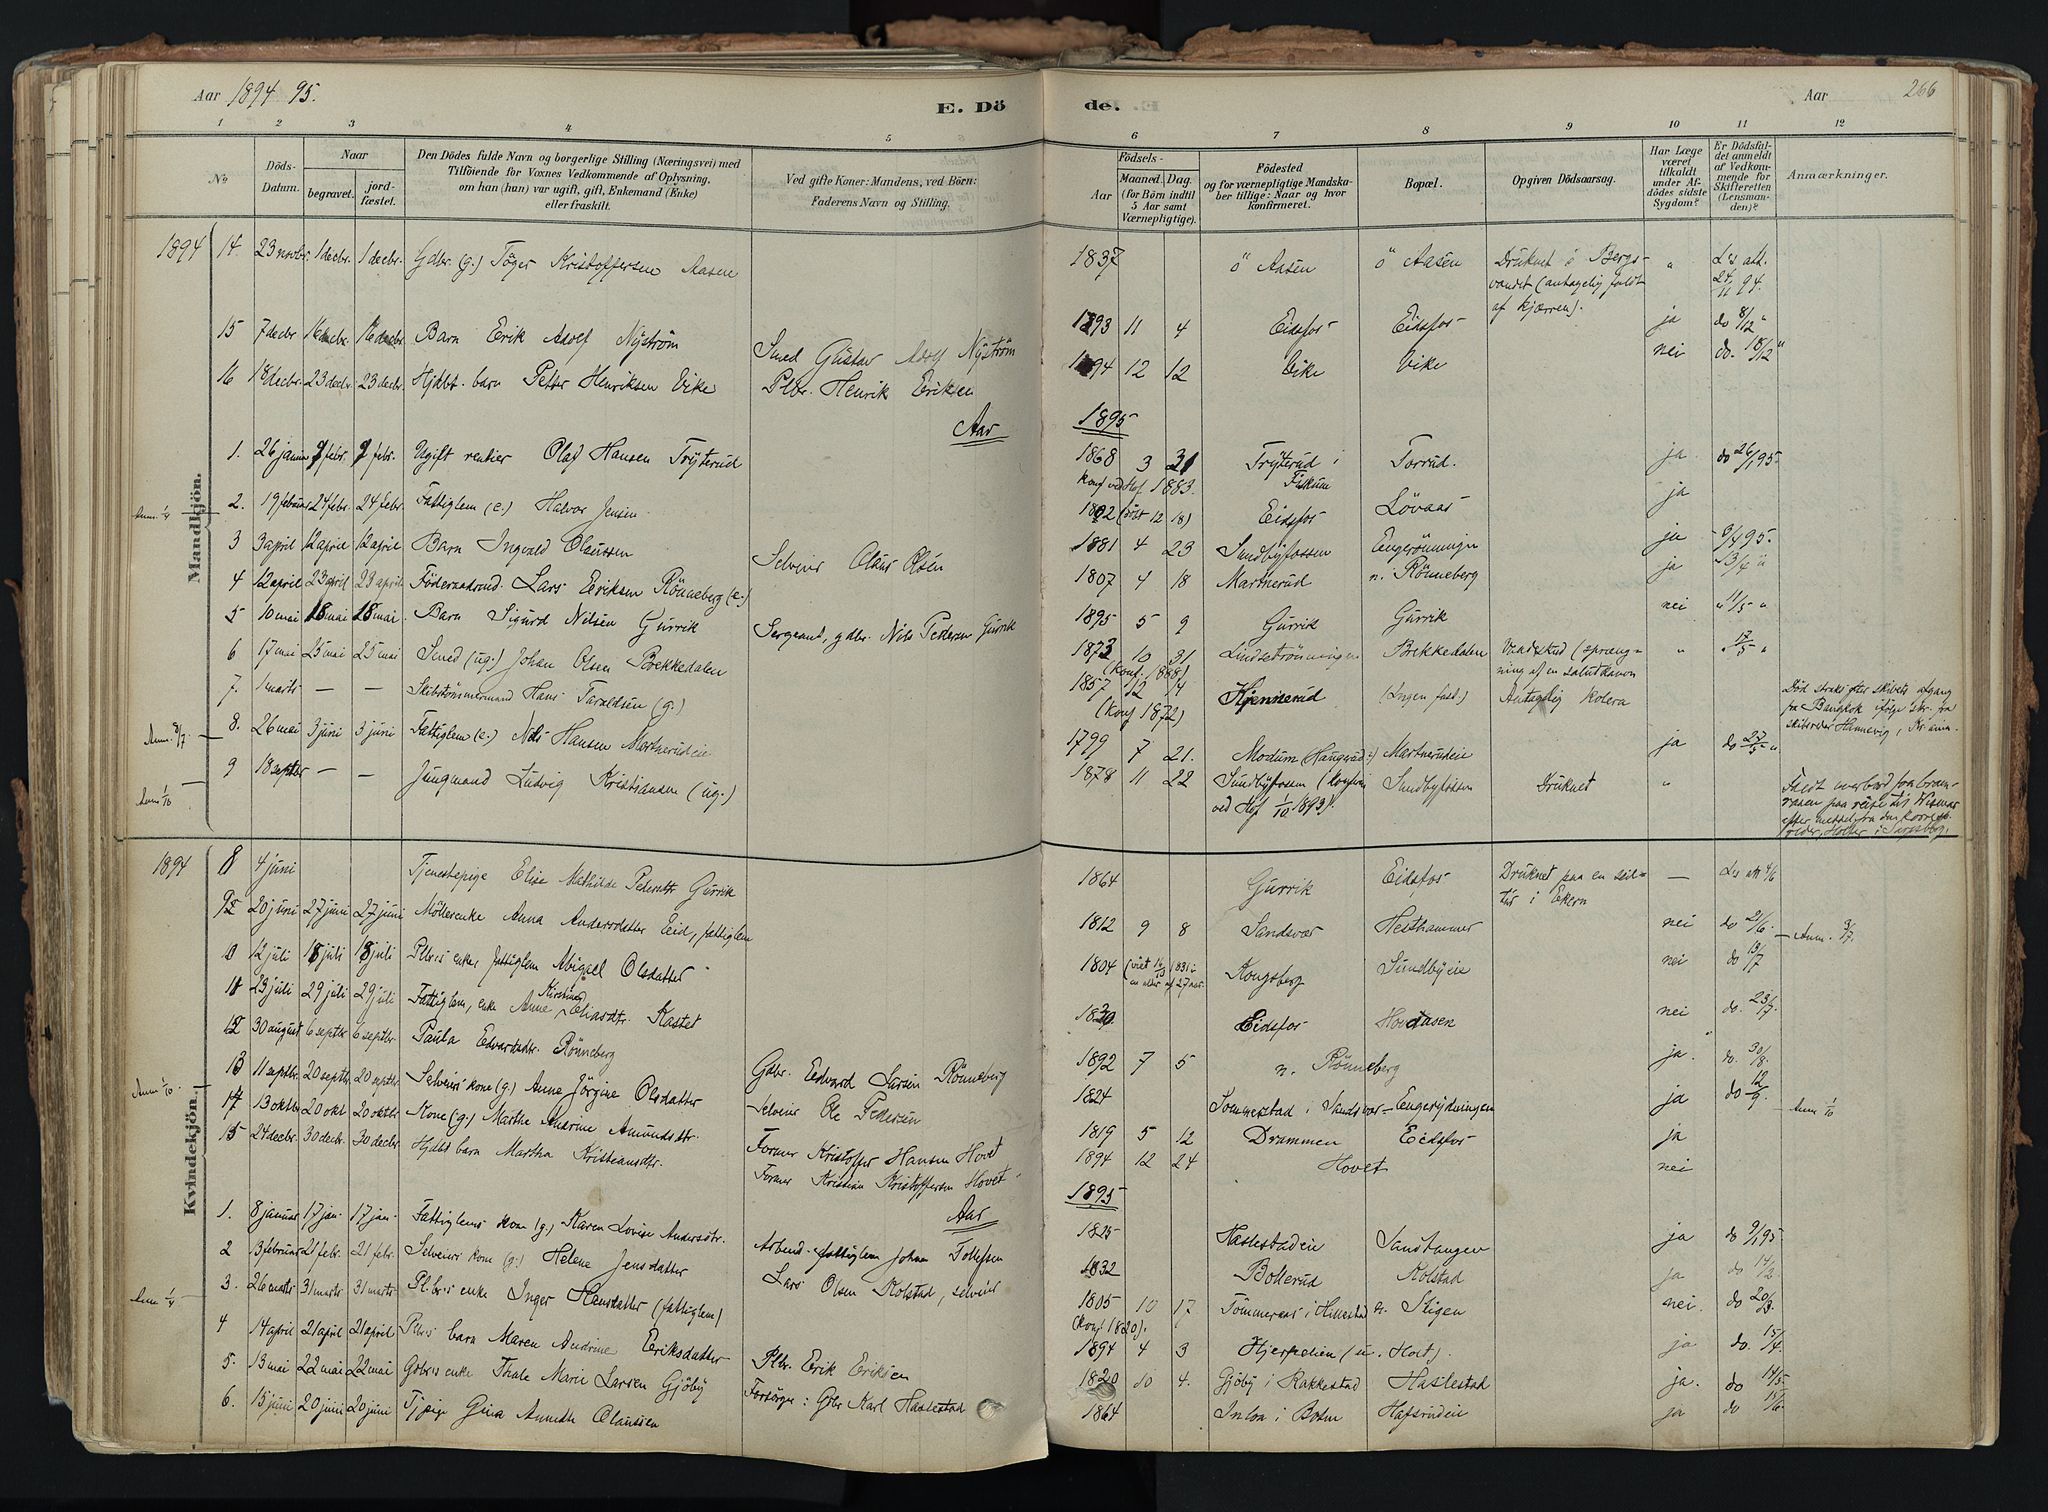 Aar 1894 95.
E. Dö
de.
Aar
266
1 2 3 4 5 6 7 8 9 10 11 12
No
Döds-Datum.
Naar
begravet.
jord-fæstet.
Den Dödes fulde Navn og borgerlige Stilling (Næringsvei) med
Tilföiende for Voxnes Vedkommende af Oplysning,
om han (hun) var ugift, gift, Enkemand (Enke)
eller fraskilt.
Ved gifte Koner: Mandens, ved Börn:
Faderens Navn og Stilling.
Födsels-
Aar
Maaned
Dag
(for Börn indtil
5 Aar samt
Værnepligtige).
Födested
og for værnepligtige Mandska-
ber tillige: Naar og hvor
konfirmeret.
Bopæl.
Opgiven Dödsaarsag.
Har Læge
været
tilkaldt
under Af-
dödes sidste
Sygdom?
Er Dödsfal-
det anmeldt
af Vedkom-
mende for
Skifteretten
(Lensman-
den)?
Anmærkninger.
Mandkjön.
1894 14. 23 novbr. 1 decbr. 1 decbr. Gdbr. (g.) Töger Kristoffersen Aasen 1837 ö Aasen ö Aasen Druknet i Bergs-
vandet (antagelig faldt
af kjærren). " L's att. 24/11 94.
15 7 decbr 16 decbr. 16 decbr. Barn Erik Adolf Nyström Smed Gustav Adolf Nyström 1893 11 4 Eidsfos Eidsfos ja do 8/12 "
16 18 decbr. 23 decbr. 23 decbr. Hjdbt. barn Petter Henriksen Vike Plbr. Henrik Eriksen 1894 12 12 Vike Vike nei do. 18/12 "
Aar 1895
1. 26 januar febr. febr. Ugift rentier Olaf Hansen Tryterud 1868 3 31 Tryterud i Fiskum Torrud. ja do 26/1 95.
Konf ved Hof 1883.
Anm. 1/4 2. 19 februar 24 febr. 24 febr. Fattiglem (e.) Halvor Jensen 1802 (döbt 12 18) Eidsfos Lövaas ja
3 3 april 12 april 12 april Barn Ingvald Olaussen Selveier Olaus Olsen 1881 4 23 Sundbyfossen Engerönningen ja 6/4 95.
4 12 april 23 april 23 april Föderaadsmd. Lars Eriksen Rönneberg (e.) 1807 4 18 Martnerud n. Rönneberg ja " 13/4 "
5 10 mai 18 mai 18 mai Barn Sigurd Nilsen Gurrik Sergeant, gdbr. Nils Pedersen Gurrik 1895 5 9 Gurrik Gurrik nei " 11/5 "
6 17 mai 25 mai 25 mai Smed (ug.) Johan Olsen Brekkedalen 1873 10 31 Lindsetrönningen Brekkedalen Vaadeskud (spræng-
ning af en salutkanon " 17/5 "
(konf. 1888)
7. 1 marts — — Skibstömmermand Hans Taraldsen (g.) 1857 12 14 Kjennerud (Ingen fast.) Antagelig kolera Död straks efter skibets afgang
fra Bangkok ifölge skr. fra
skibsreder Hannevig, Kr.ania.
(konf 1872)
Anm. 8/7 8. 26 mai 3 juni 3 juni Fattiglem (e.) Nils Hansen Martnerudeie 1799 7 21. Modum (Haugerud:) Martnerudeie ja do 27/5 "
Anm 1/10 9 18 septbr — — Jungmand Ludvig Kristiansen (ug.) 1878 11 22 Sundbyfossen (konf.
ved Hof 1/10 1893). Sundbyfossen Druknet " Faldt overbord fra bram-
raaen paa reise til Wismar
efter meddel. fra den korresp.
reder, Holler i
Kvindekjön.
1894 8 4 juni Tjenestepige Elise Mathilde Pedersdtr Gurrik 1864 Gurrik Eidsfos Druknet paa en seil-
tur i Ekern — L's att 4/6
9 20 juni 27 juni 27 juni Möllerenke Anna Andersdatter Eid, fattiglem 1812 9 8 Sandsvær Hesthammer nei do 21/6. — Anm. 9/7.
10 12 juli 18 juli 18 juli Plbr.s enke, fattiglem Abigael Olsdatter 1804 (viet 1831 i
en alder af 27 aar. Kongsberg Sundbyeie nei do 13/7
11 23 juli 29 juli 29 juli Fattiglem, enke Anne Kirstine Kastet 1830. Eidsfos Hovdaasen nei do. 23/7.
12 30 august 6 septbr 6 septbr. Paula Edvardsdtr. Rönneberg Gdbr. Edvard Larsen Rönneberg 1892 7 5 n. Rönneberg ja. do. 30/8.
Anm 1/10 13 11 septbr. 20 septbr. 20 septbr Selveiers kone (g.) Anne Jörgine Olsdatter Selveier Ole Pedersen 1824 Sommerstad i Sandsvær Engerydningen ja do 12/9. — Anm 1/10
14 13 oktbr 20 okt 20 oktbr Kone (g.) Marthe Andrine Amundsdtr. Former Kristoffer Hansen Hovet 1819 5 12 Drammen Eidsfos ja
15 24 decbr. 30 decbr. 30 decbr. Hjdbt barn Martha Kristiansdtr. Former Kristian Kristoffersen Hovet 1894 12 24 Hovet nei
Aar 1895
1. 8 januar 17 jan. 17 jan. Fattiglems kone (g.) Karen Lovise Andersdtr. Arbeid. fattiglem Johan Tollefsen 1825 Haslestadeie Sandtangen ja do 9/1 95.
2 13 februar 21 febr. 21 febr. Selveiers kone (g.) Helene Jensdatter Lars Olsen Kolstad, selveier 1832 Bollerud Kolstad ja do 14/2.
Anm 1/4 3. 26 marts 31 marts 31 marts Pl.br.s enke Inger Hansdatter (fattiglem) 1805 10 17 Tömmeraas i Hillestad n. Stigen nei. do 26/3.
(konf 1820).
4 14 april 21 april 21 april Plbr.s barn Maren Andrine Eriksdatter Plbr. Erik Eriksen 1894 4 3 Hjerpelien (u. Hovt). ja do. 15/4.
5. 13 mai 22 mai 22 mai Gdbr.s enke Thale Marie Larsen Gjöby Forsörger: Gdbr Karl Haslestad 1820 10 4. Gjöby i Rakkestad Haslestad ja. do 14/5.
6. 15 juni 20 juni 20 juni Tj.pige Gina Annette Olaussen 1864 i Botne Hafsrudeie ja do 15/6.